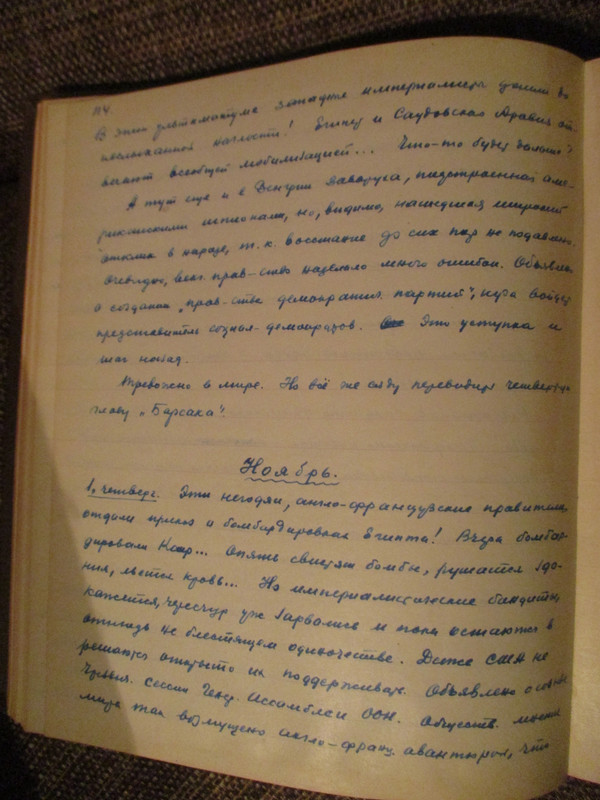 114
В этом ультиматуме западные империалисты дошли до
неслыханной наглости! Египет и Саудовская Аравия от-
вечают всеобщей мобилизацией... Что-то будет дальше?
А тут еще и в Венгрии заваруха, подстроенная аме-
риканскими шпионами, но, видимо, нашедшая широкий
отклик в народе, т. к. восстание до сих пор не подавлено.
Очевидно, венг. прав-ство наделало много ошибок. Объявлено
о создании „прав-ства демократич. партий", куда войдут
представители социал-демократов. Это уступка и
шаг назад.
Тревожно в мире. Но всё же сяду переводить четвертую
главу „Барсака".
Ноябрь.
1, четверг. Эти негодяи, англо-французские правители,
отдали приказ о бомбардировках Египта! Вчера бомбар-
дировали Каир... Опять свистят бомбы, рушатся зда-
ния, льется кровь... Но империалистические бандиты,
кажется, чересчур уж зарвались и пока остаются в
отнюдь не блестящем одиночестве. Даже США не
решаются открыто их поддерживать. Объявлено о созыве
Чрезвыч. сессии Генер. Ассамблеи ООН. Обществ. мнение
мира так возмущено англо-франц. авантюрой, что